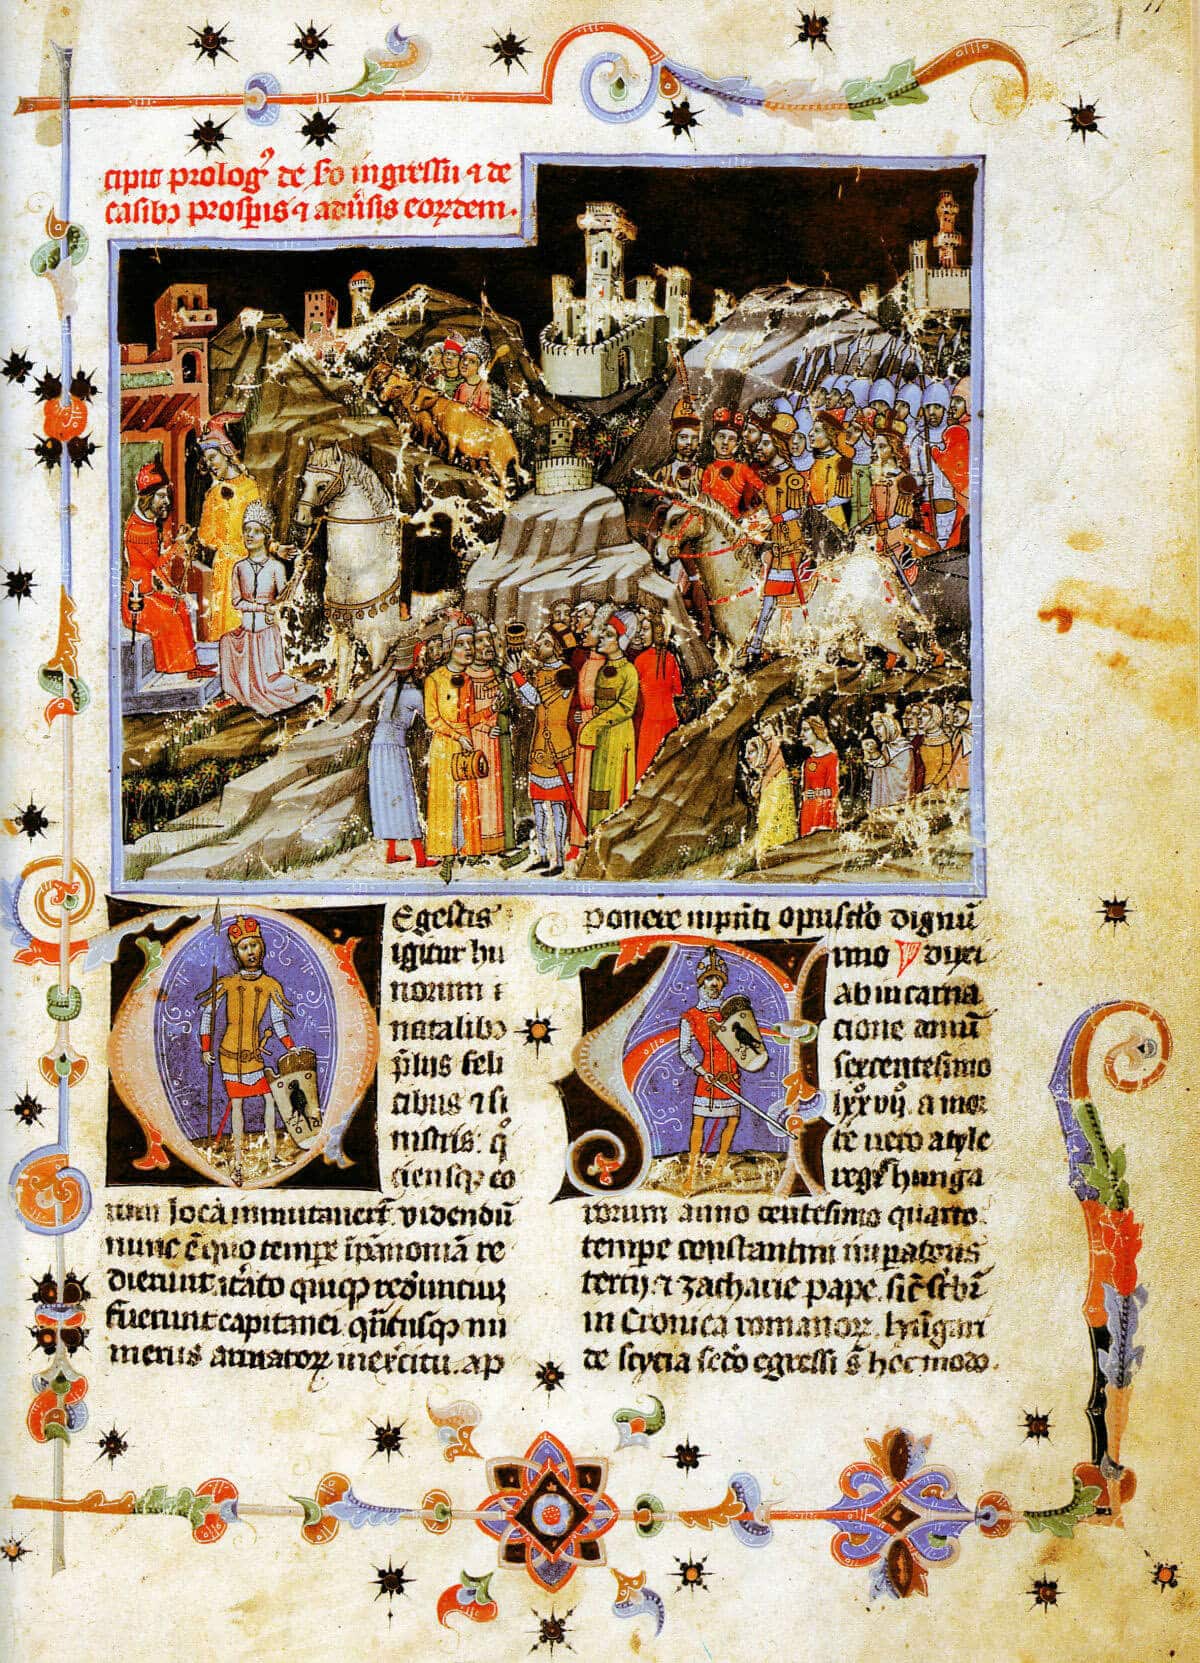 cipit prolog⁹ de s̄c̄do ingressu ⁊ de
casibꝫ prosp̄is ⁊ adūsis eoꝝdem.
Egestis
igitur hu
norum ⁊
natalibꝫ
p̄lijs feli
cibus ⁊ si
nistris: q̄
ciensqꝫ eo
rum loca inmutauer̄t. videndū
nunc ē quo tempe ī pānoniā re
dierunt itato quiqꝫ redūntiuꝫ
fuerunt capitanei. qn̄tusqꝫ nu
merus armatoꝝ in exercitu. ap
ponere in pn̄ti opusc̄lo dignū
imo
dixi
ab incarna
cione annū
sexcentesimo
lxxvij. a mor
te uero atyle
reḡ hunga
rorum anno centesimo quarto.
tempe constantini imp̄atoris
tercij. ⁊ zacharie pape. sic̄ sc̄bi
in Cronica romanoꝝ. hūgari
de scycia sēdo egressi s̄t hoc modo.